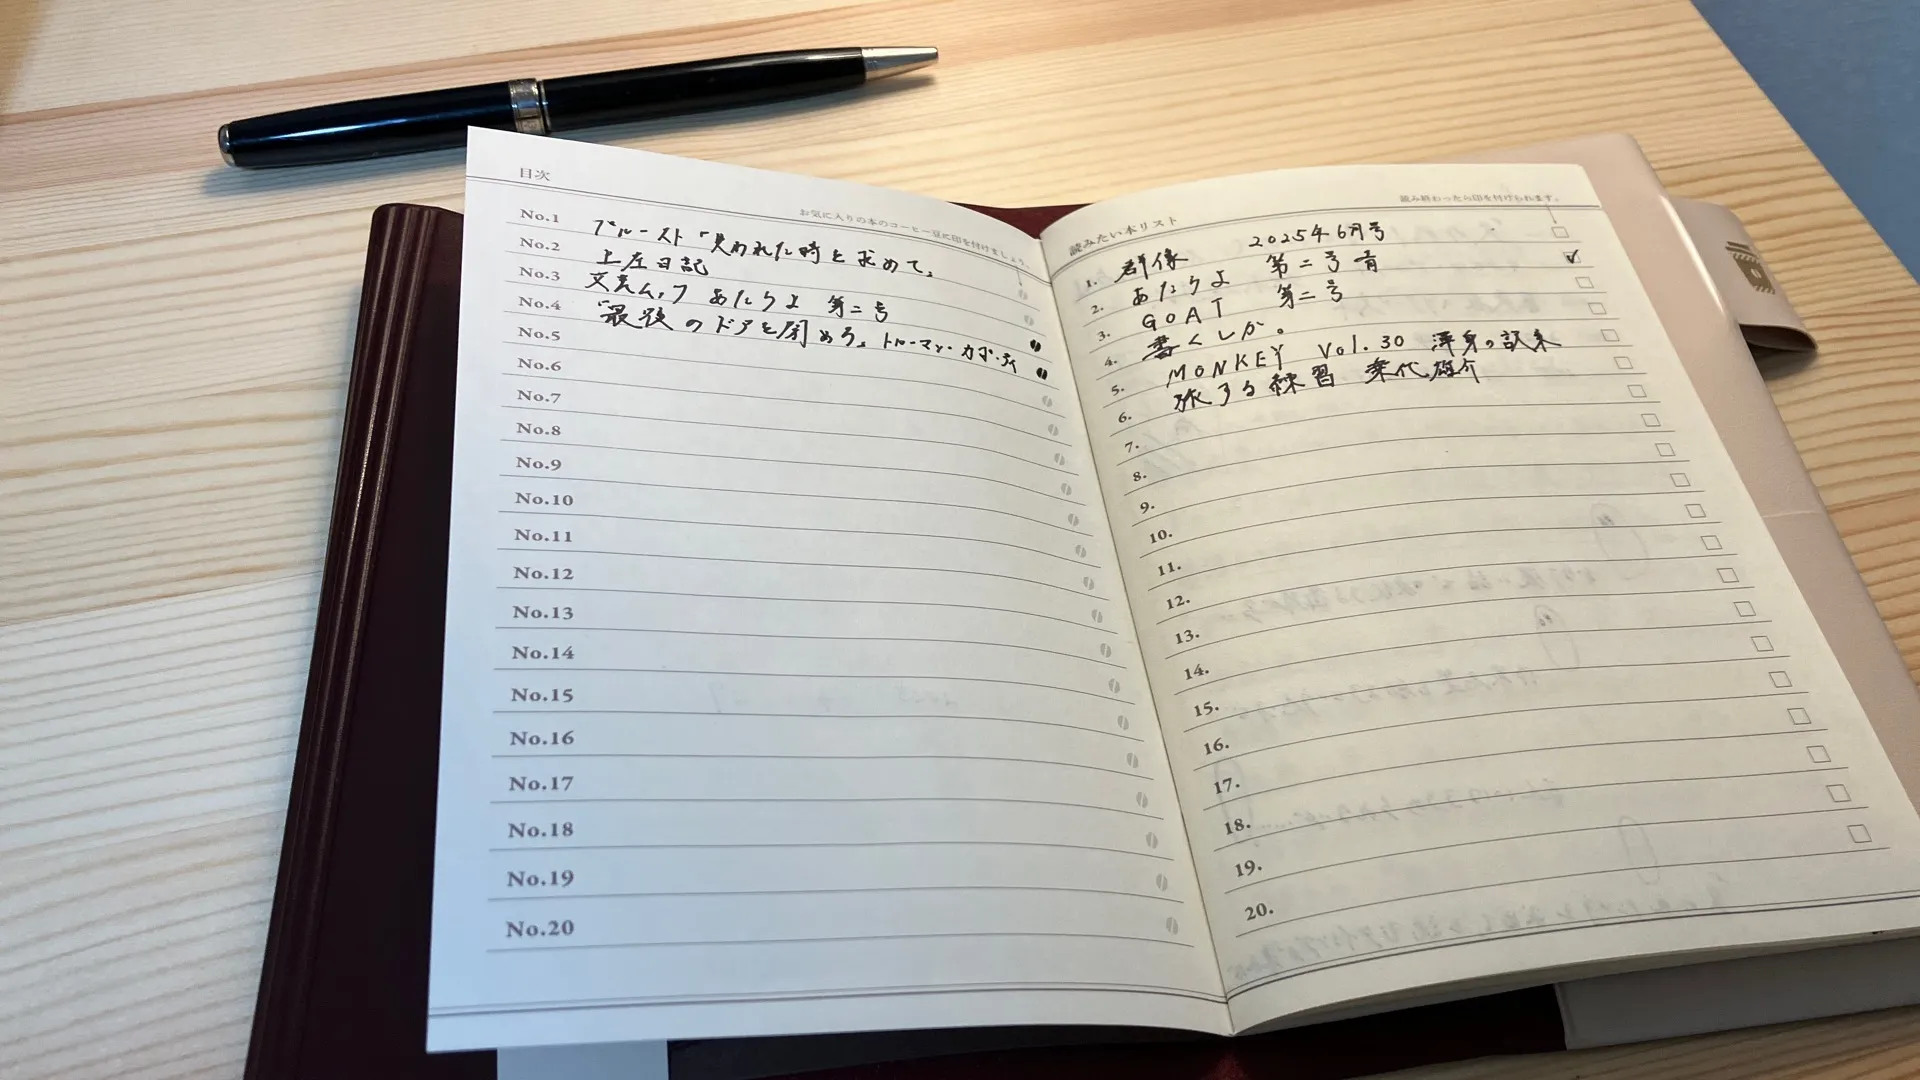 目次
お気に入りの本のコーヒー豆に印を付けましょう。
No.1 プルースト「失われた時を求めて」
No.2 土左日記
No.3 文芸ムック あたらよ 第二号
No.4 「最後のドアを閉めろ」トルーマン・カポーティ
No.5
No.6
No.7
No.8
No.9
No.10
No.11
No.12
No.13
No.14
No.15
No.16
No.17
No.18
No.19
No.20
読みたい本リスト
読み終わったら印を付けられます。
1. 群像 2025年6月号
2. あたらよ 第二号 青
3. GOAT 第二号
4. 書くしか。
5. MONKEY Vol.30 渾身の訳
6. 旅する練習 乗代雄介
7.
8.
9.
10.
11.
12.
13.
14.
15.
16.
17.
18.
19.
20.